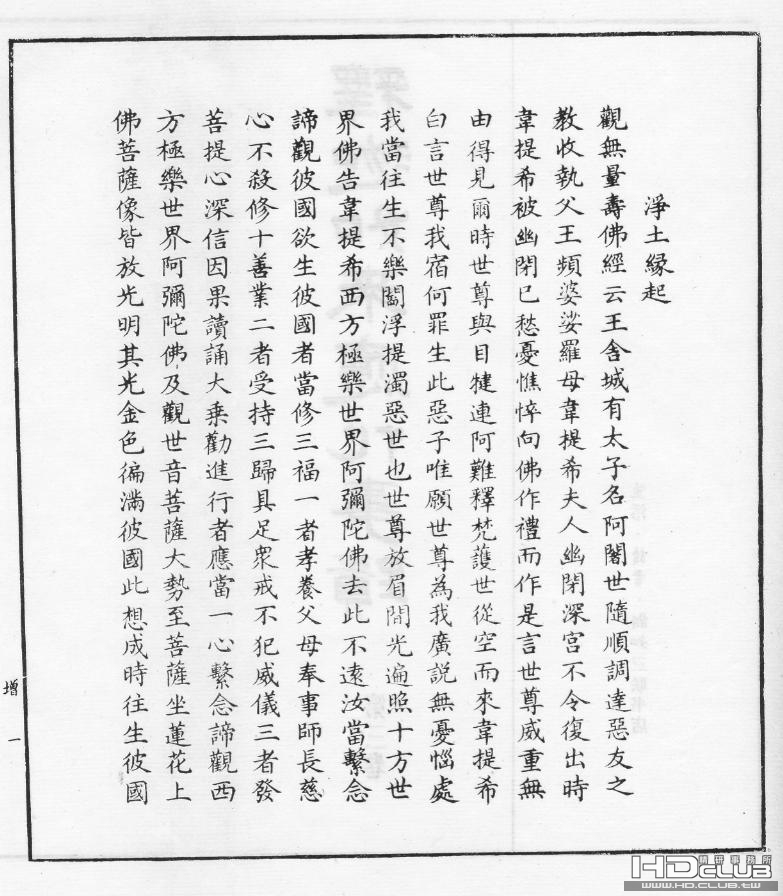 淨土緣起
觀無量壽佛經云王舍城有太子名阿闍世隨順調達惡友之
教收執父王頻婆娑羅母韋提希夫人幽閉深宮不令復出時
韋提希被幽閉已愁憂憔悴向佛作禮而作是言世尊威重無
由得見爾時世尊與目犍連阿難釋梵護世從空而來韋提希
白言世尊我宿何罪生此惡子唯願世尊為我廣說無憂惱處
我當往生不樂閻浮提濁惡世也世尊放眉間光遍照十方世
界佛告韋提希西方極樂世界阿彌陀佛去此不遠汝當繫念
諦觀彼國欲生彼國者當修三福一者孝養父母奉事師長慈
心不殺修十善業二者受持三歸具足眾戒不犯威儀三者發
菩提心深信因果讀誦大乘勸進行者應當一心繫念諦觀西
方極樂世界阿彌陀佛及觀世音菩薩大勢至菩薩坐蓮花上
佛菩薩像皆放光明其光金色徧滿彼國此想成時往生彼國
增 一
HDCLUB 精研事務所
WWW.HD.CLUB.TW